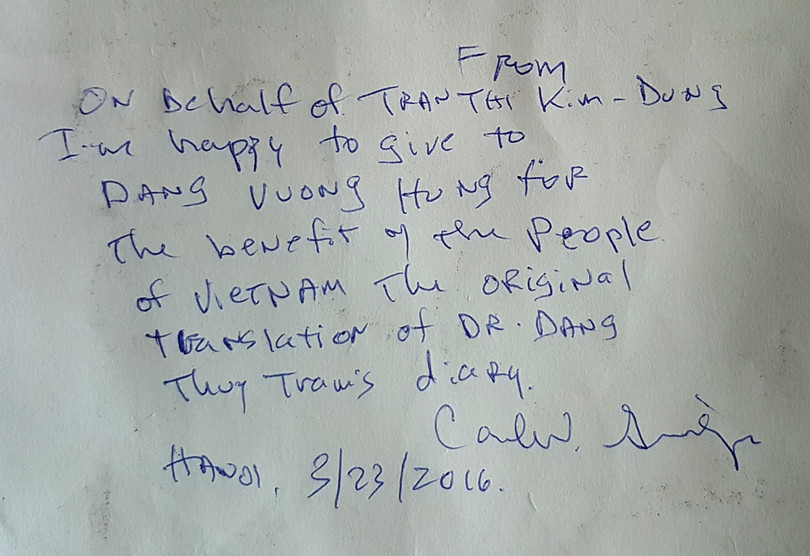 From
ON Behalf of TRAN THI Kim-Dung
I'm happy to give to
DANG VUONG HUNG for
the benefit of the People
of VIETNAM The ORiginal
translation of DR. DANG
Thuy Tram's diary.
HANOI, 3/23/2016.